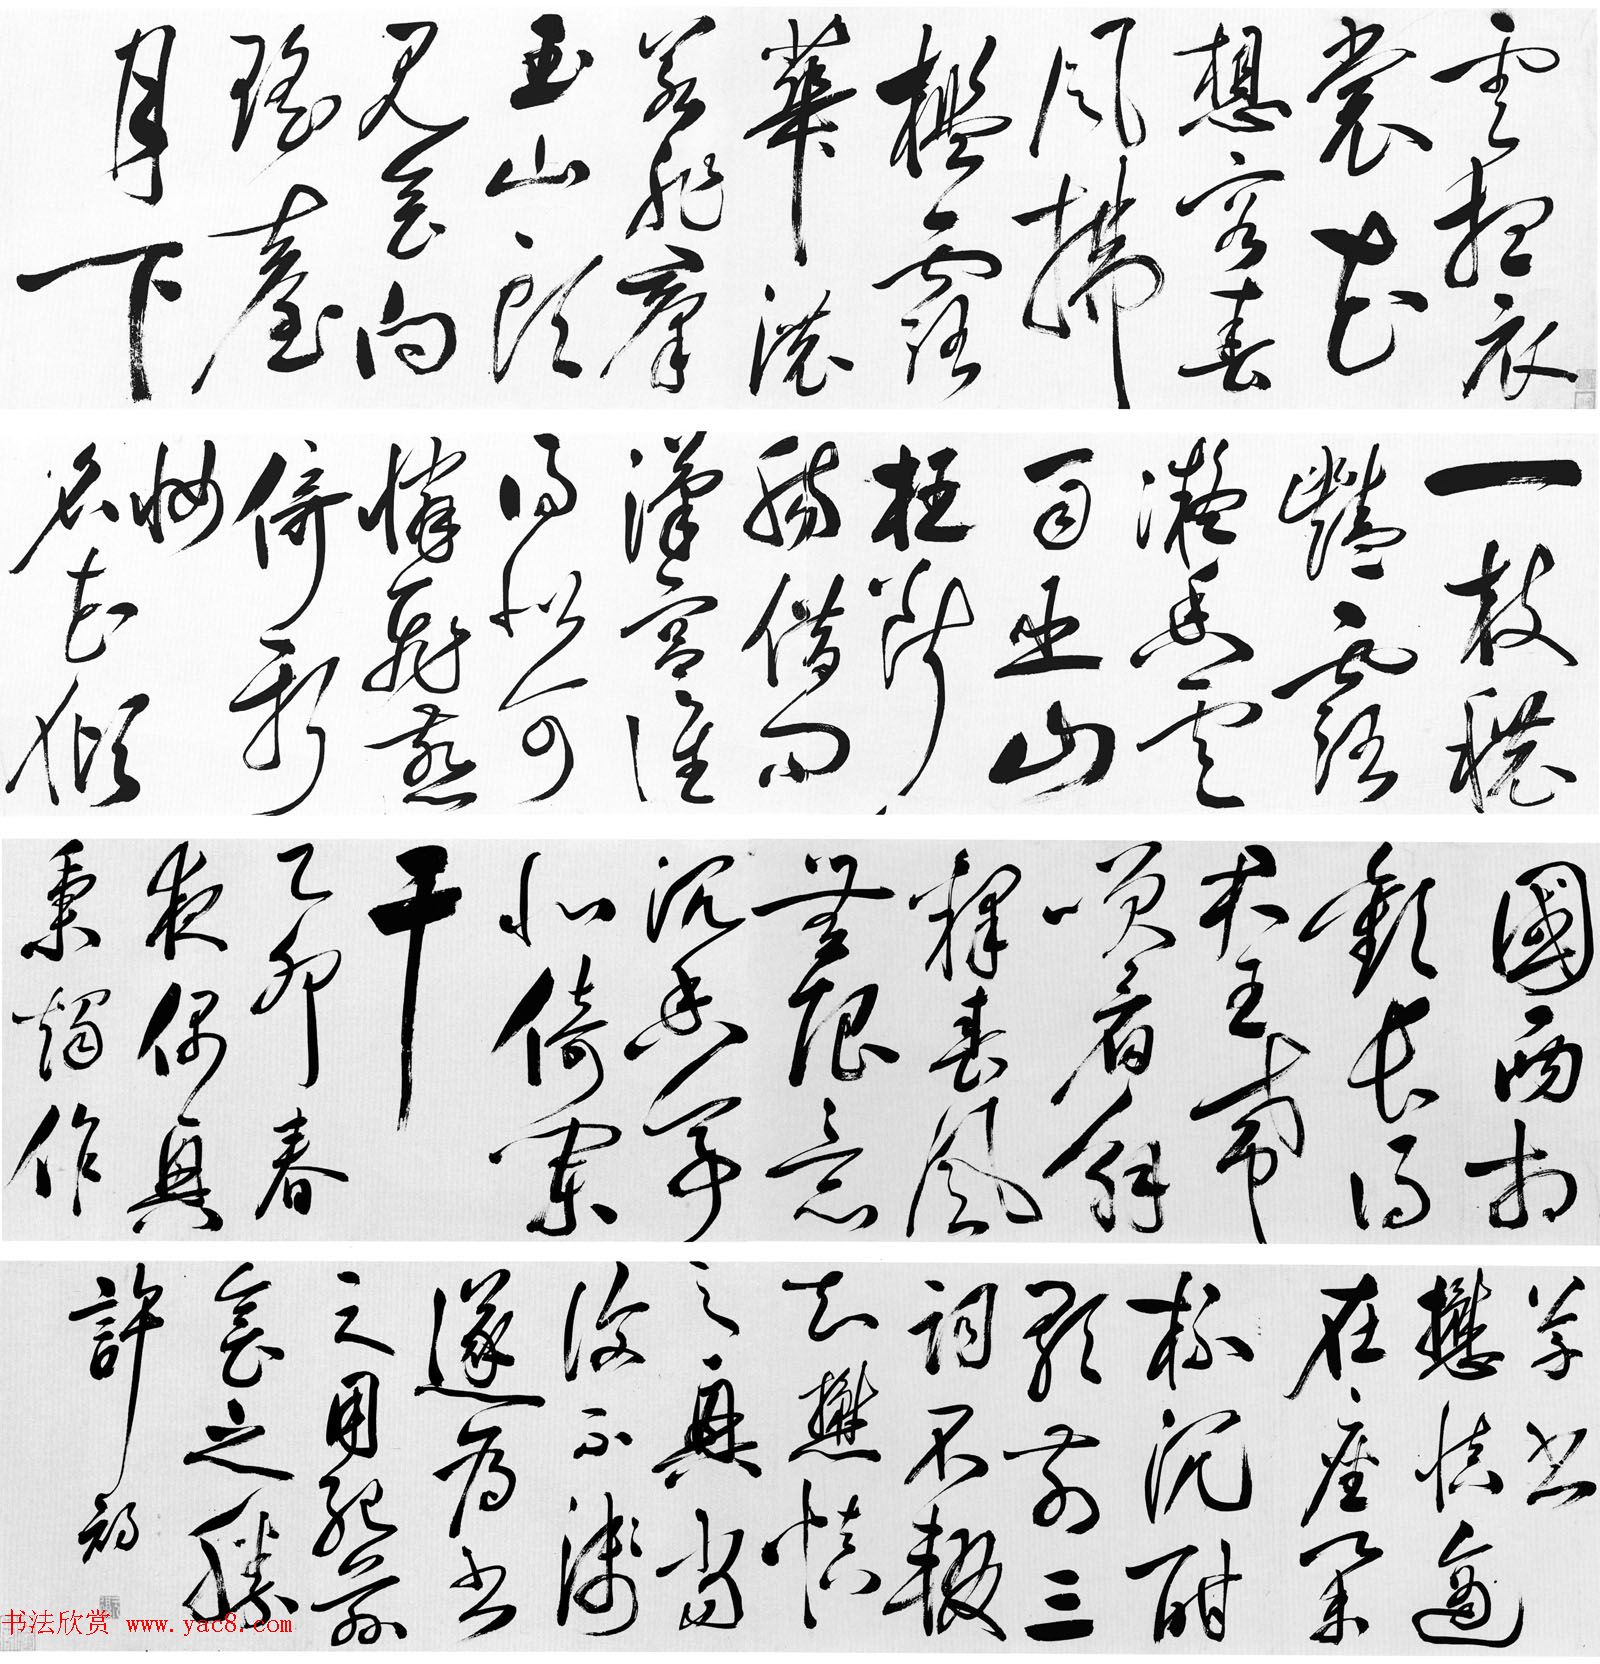 雲想衣
裳花
想容春
風拂
檻露
華濃
若非群
玉山頭
見會向
瑤臺
月下
一枝穠
艷露
凝香雲
雨巫山
枉斷
腸借問
漢宮誰
得似可
憐飛燕
倚新
妝
名花傾
國兩相
歡長得
君王帶
笑看解
釋春風
無限意
沉香亭
北倚闌
干
乙卯春
夜偶興
秉燭作
草書
懋慎適
在座舉
杯沉酣
歌前三
詞不輟
懋慎
之興當
復不淺
遂為書
之用紀
會之勝
許初
书法欣赏 www.yac8.com